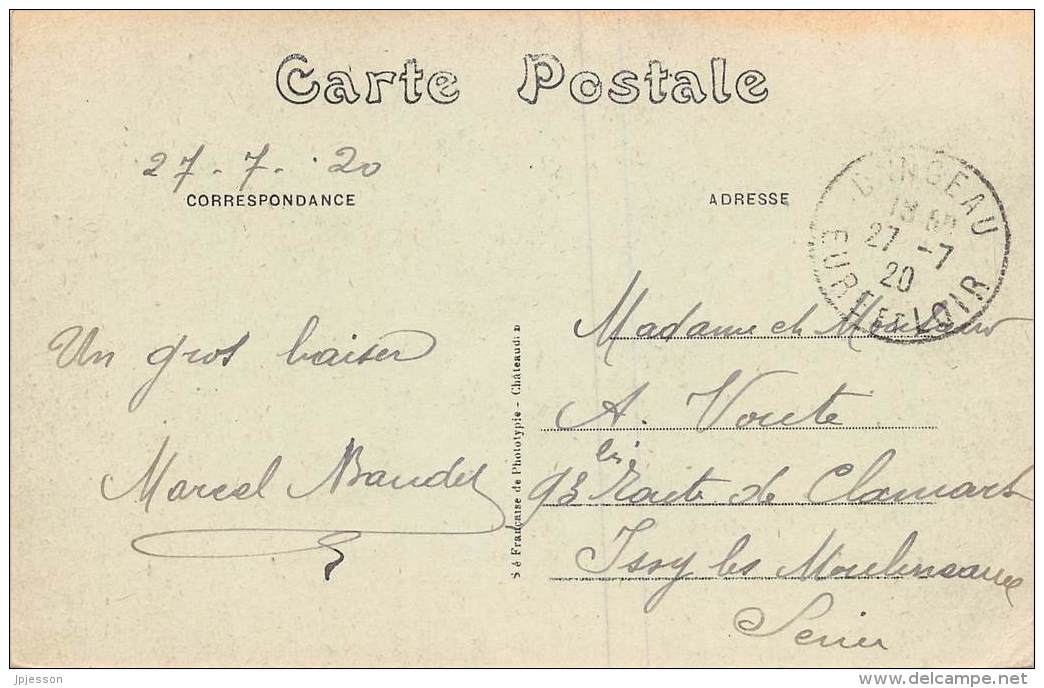 Carte Postale
27-7-20
CORRESPONDANCE
ADRESSE
DANGEAU
27 -7
20
EURE ET LOIR
Un gros baiser
Marcel Baudet
Sé Française de Phototypie - Châteaudun
Madame et Monsieur
A. Voute
93 Route de Clamart
Issy les Moulineaux
Seine
jpjesson
delcampe.net